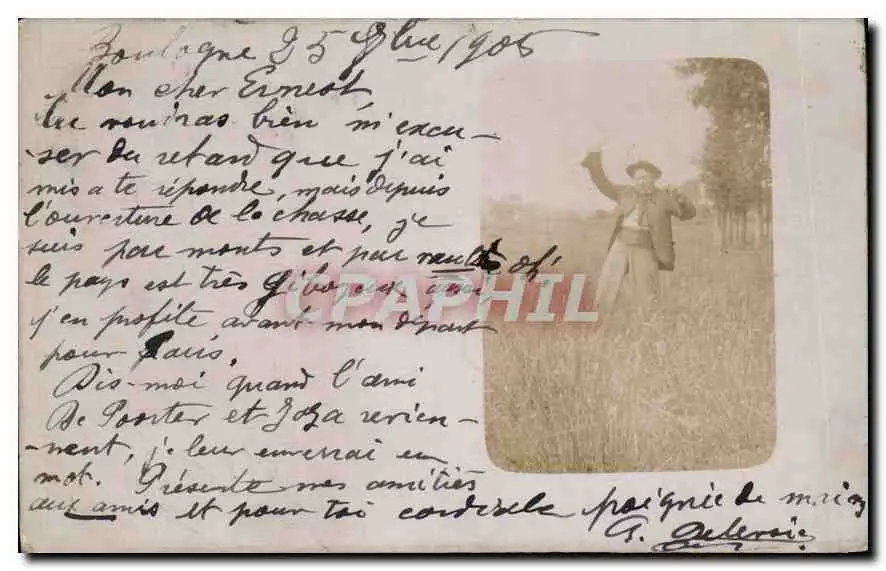 Boulogne 25 7bre 1905
Mon cher Ernest,
tu voudras bien m'excu-
-ser du retard que j'ai
mis a te répondre, mais depuis
l'ouverture de la chasse, je
suis par monts et par vaults oh!
le pays est très giboyeux aussi,
j'en profite avant mon départ
pour Paris.
Dis-moi quand l'ami
De Poorter et Zoza revien-
-nent, je leur enverrai un
mot. Présente mes amitiés
aux amis et pour toi cordiale poignée de main
CPAPHIL